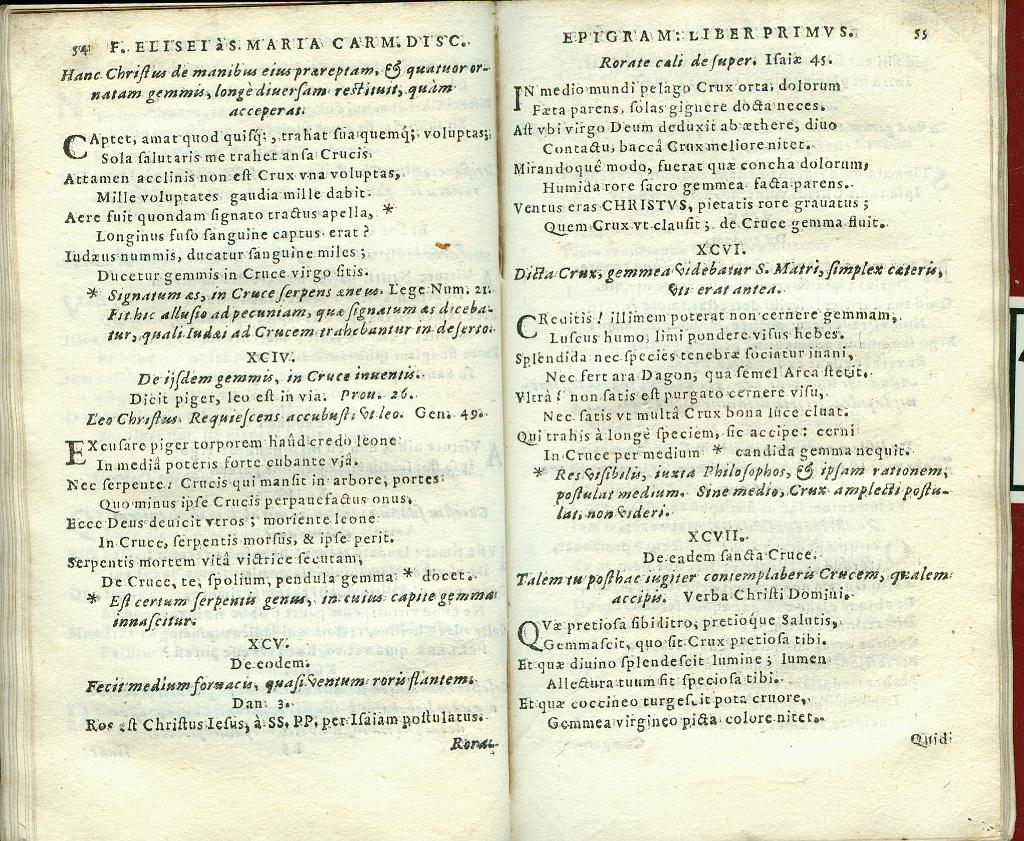 54 F. ELISEI à S. MARIA CARM. DISC.
Hanc Christus de manibus eius præreptam, & quatuor or-
natam gemmis, longè diuersam restituit, quàm
acceperat.
CAptet, amat quod quisq;, trahat sua quemq; voluptas;
Sola salutaris me trahet ansa Crucis.
Attamen acclinis non est Crux vna voluptas,
Mille voluptates gaudia mille dabit.
Aere fuit quondam signato tractus apella, *
Longinus fuso sanguine captus erat?
Iudæus nummis, ducatur sanguine miles;
Ducetur gemmis in Cruce virgo sitis.
* Signatum æs, in Cruce serpens æneus. Lege Num. 21.
Fit hic allusio ad pecuniam, quæ signatum æs diceba-
tur, quali Iudæi ad Crucem trahebantur in deserto.
XCIV.
De ijsdem gemmis, in Cruce inuentis.
Dicit piger, leo est in via. Prou. 26.
Leo Christus. Requiescens accubuisti vt leo. Gen. 49.
EXcusare piger torporem haûd credo leone
In mediâ poteris forte cubante viâ.
Nec serpente: Crucis qui mansit in arbore, portes
Quo minus ipse Crucis perpauefactus onus,
Ecce Deus deuicit vtros; moriente leone
In Cruce, serpentis morsus, & ipse perit.
Serpentis mortem vitâ victrice secutam,
De Cruce, te, spolium, pendula gemma * docet.
* Est certum serpentis genus, in cuius capite gemma
innascitur.
XCV.
De eodem.
Fecit medium fornacis, quasi ventum roris flantem.
Dan. 3.
Ros est Christus Iesus, à SS. PP. per Isaiam postulatus.
Rora-
EPIGRAM: LIBER PRIMVS. 55
Rorate cæli desuper. Isaiæ 45.
IN medio mundi pelago Crux orta: dolorum
Fæta parens, solas gignere docta neces.
Ast vbi virgo Deum deduxit ab æthere, diuo
Contactu, baccâ Crux meliore nitet.
Mirandoquê modo, fuerat quæ concha dolorum,
Humida rore sacro gemmea facta parens.
Ventus eras CHRISTVS, pietatis rore grauatus;
Quem Crux vt clausit; de Cruce gemma fluit.
XCVI.
Dicta Crux, gemmea videbatur S. Matri, simplex cæteris,
vti erat antea.
CReditis! illimem poterat non cernere gemmam,
Luscus humo, limi pondere visus hebes.
Splendida nec species tenebræ sociatur inani,
Nec fert ara Dagon, qua semel Arca stetit.
Vltrà! non satis est purgato cernere visu,
Nec satis vt multâ Crux bona luce cluat.
Qui trahis à longè speciem, sic accipe: cerni
In Cruce per medium * candida gemma nequit.
* Res visibilis, iuxta Philosophos, & ipsam rationem,
postulat medium. Sine medio, Crux amplecti postu-
lat, non videri.
XCVII.
De eadem sancta Cruce.
Talem tu posthac iugiter contemplaberis Crucem, qualem
accipis. Verba Christi Domini.
QVæ pretiosa sibi ditro, pretioque Salutis,
Gemmascit, quo sit Crux pretiosa tibi.
Et quæ diuino splendescit lumine; lumen
Allectura tuum sit speciosa tibi.
Et quæ coccineo turgescit pota cruore,
Gemmea virgineo picta colore nitet.
Quid